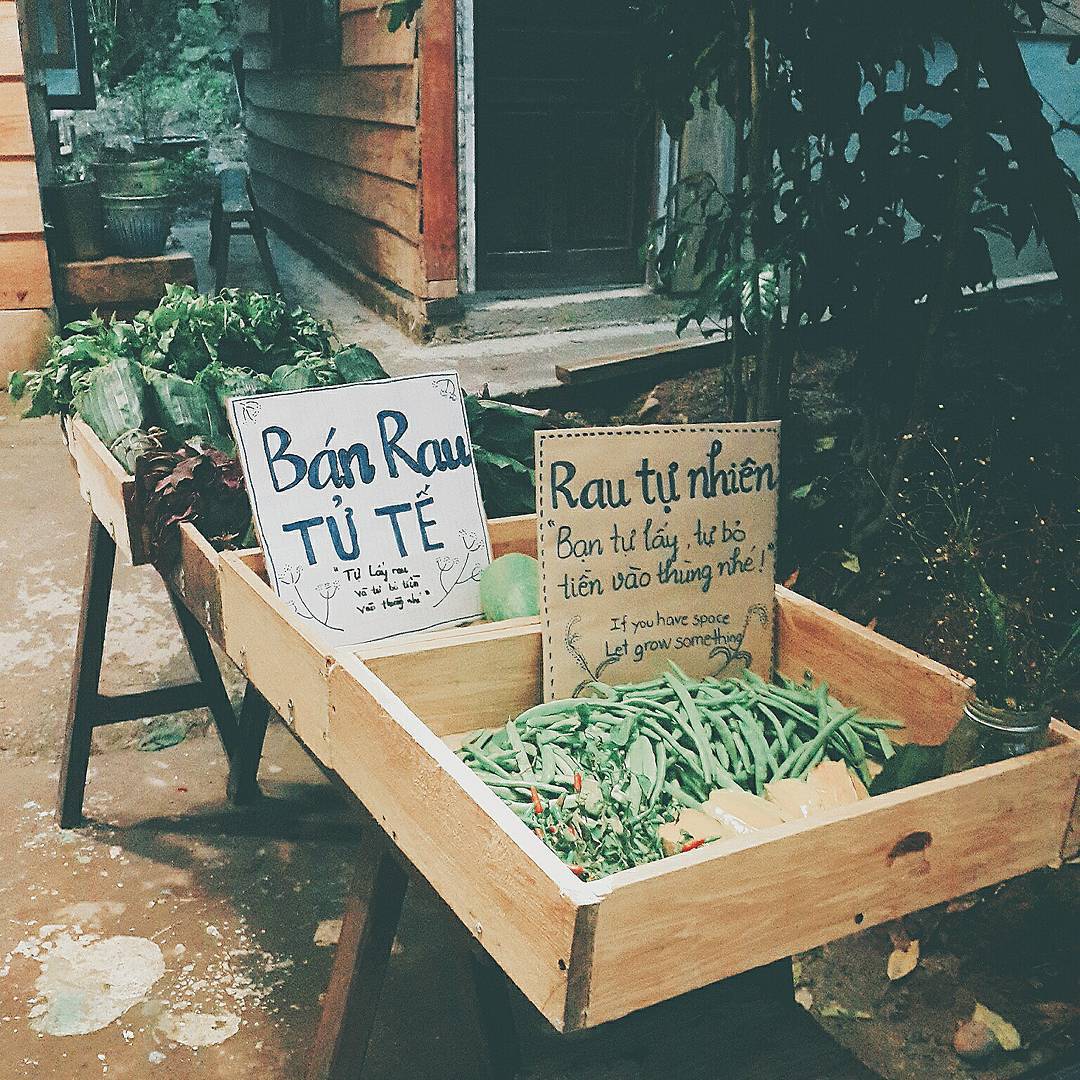 Bán Rau
TỬ TẾ
"Tự lấy rau
và tự bỏ tiền
vào thùng nhé"
Rau tự nhiên
"Bạn tự lấy, tự bỏ
tiền vào thùng nhé!"
If you have space
Let grow something